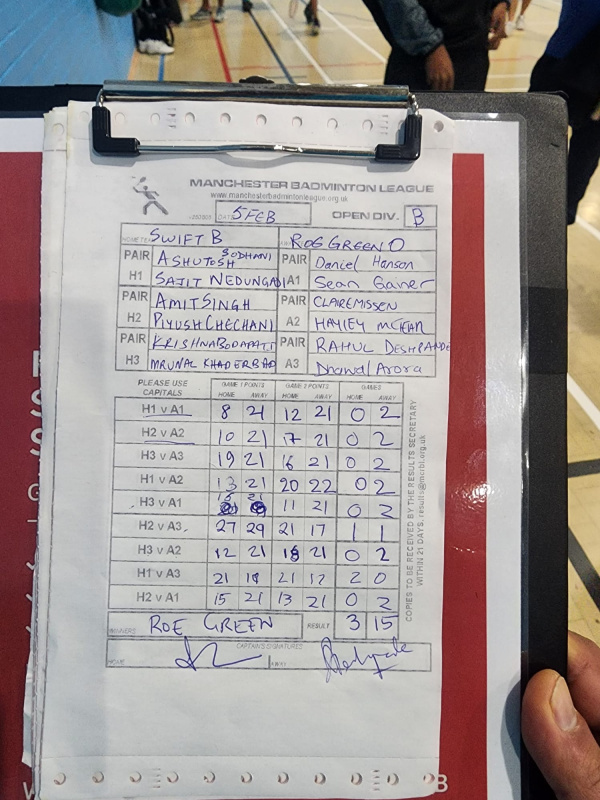 MANCHESTER BADMINTON LEAGUE
www.manchesterbadmintonleague.org.uk
DATE 5 FEB OPEN DIV. B
HOME TEAM SWIFT B ROE GREEN D
PAIR H1 ASHUTOSH BODHANI PAIR A1 Daniel Hanson
SAJIT NEDUNGADI Sean
PAIR H2 AMIT SINGH PAIR A2 CLAIRE MISSEN
PIYUSH CHECHANI HAYLEY
PAIR H3 KRISHNA BODAPATI PAIR A3 RAHUL DESHPANDE
MRUNAL KHADERBAD Dhawal Arora
PLEASE USE CAPITALS GAME 1 POINTS GAME 2 POINTS GAMES
HOME AWAY HOME AWAY HOME AWAY
H1 v A1 8 21 12 21 0 2
H2 v A2 10 21 17 21 0 2
H3 v A3 19 21 16 21 0 2
H1 v A2 13 21 20 22 0 2
H3 v A1 15 21 11 21 0 2
H2 v A3 27 29 21 17 1 1
H3 v A2 12 21 18 21 0 2
H1 v A3 21 21 2 0
H2 v A1 15 21 13 21 0 2
WINNERS ROE GREEN RESULT 3 15
CAPTAIN'S SIGNATURES
HOME AWAY
COPIES TO BE RECEIVED BY THE RESULTS SECRETARY
WITHIN 21 DAYS.